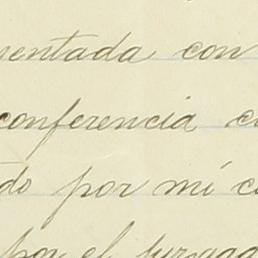 mentada con
conferencia c
do por mí c
por el juzgad